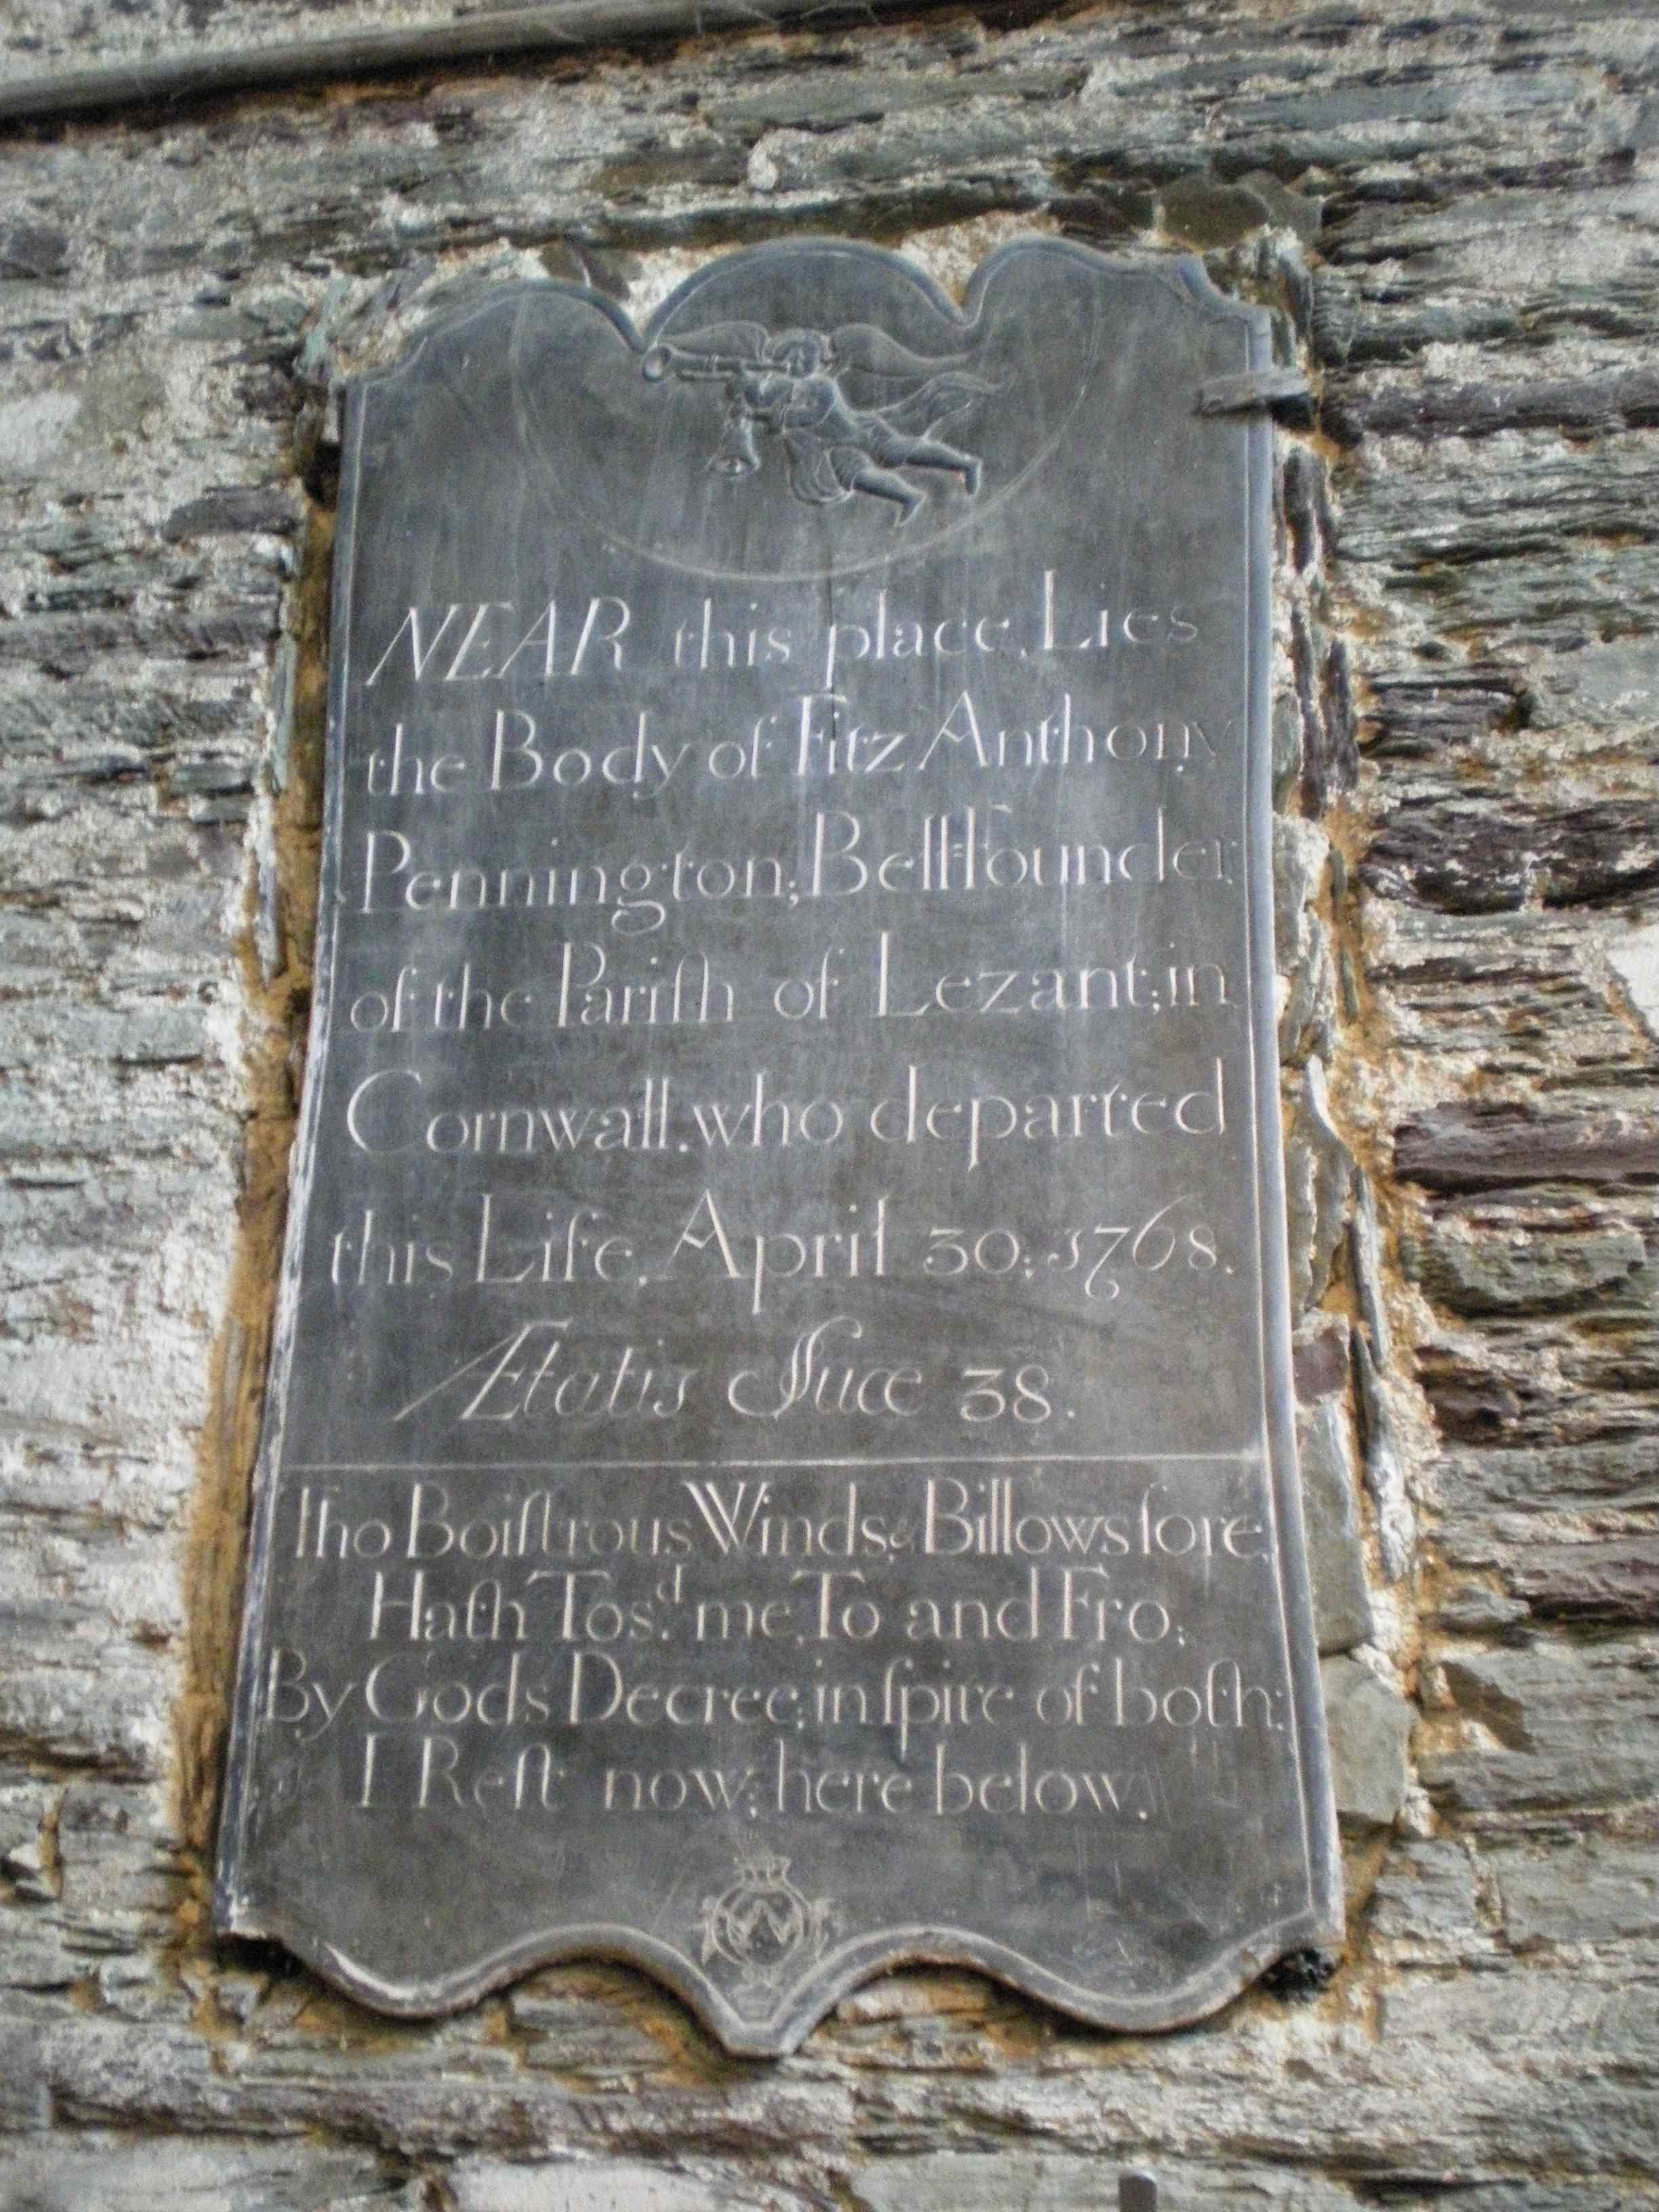 NEAR this place, Lies
the Body of Fitz Anthony
Pennington; Bell-Founder,
of the Pariſh of Lezant; in
Cornwall. who departed
this Life, April 30; 1768.
Ætatis Suæ 38.
Tho Boiſtrous Winds, & Billows ſore,
Hath Tos.ᵈ me, To and Fro;
By Gods Decree; in ſpite of both;
I Reſt now; here below.